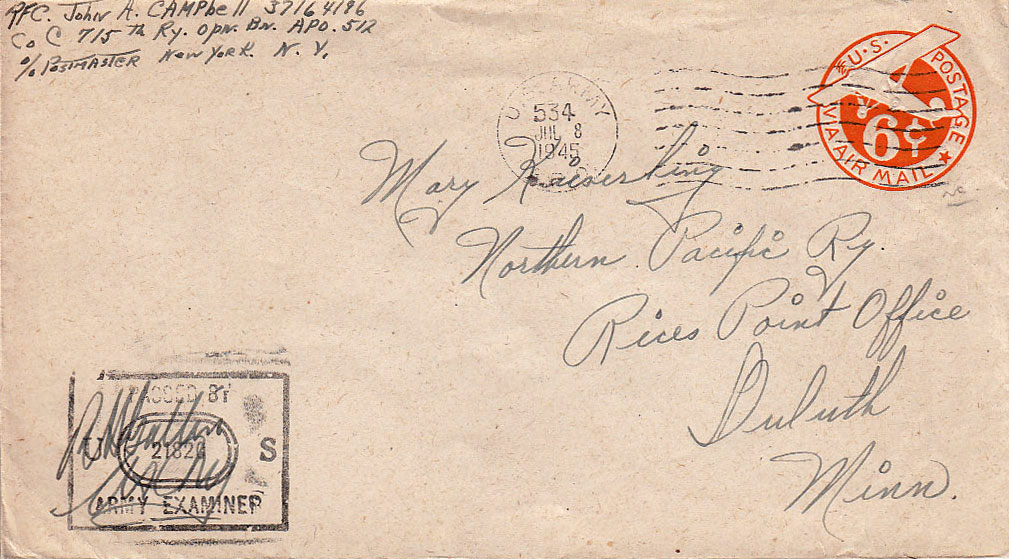 PFC. John A. CAMPbell 37164196
Co C 715 Th Ry. Opn. Bn. APO. 512
% POSTMASTER New York N. Y.
U.S. POSTAGE
6¢
VIA AIR MAIL
U.S. ARMY
534
JUL 8
1945
Mary
Northern Pacific Ry.
Rices Point Office
Duluth
Minn.
PASSED BY
U 21820 S
ARMY EXAMINER